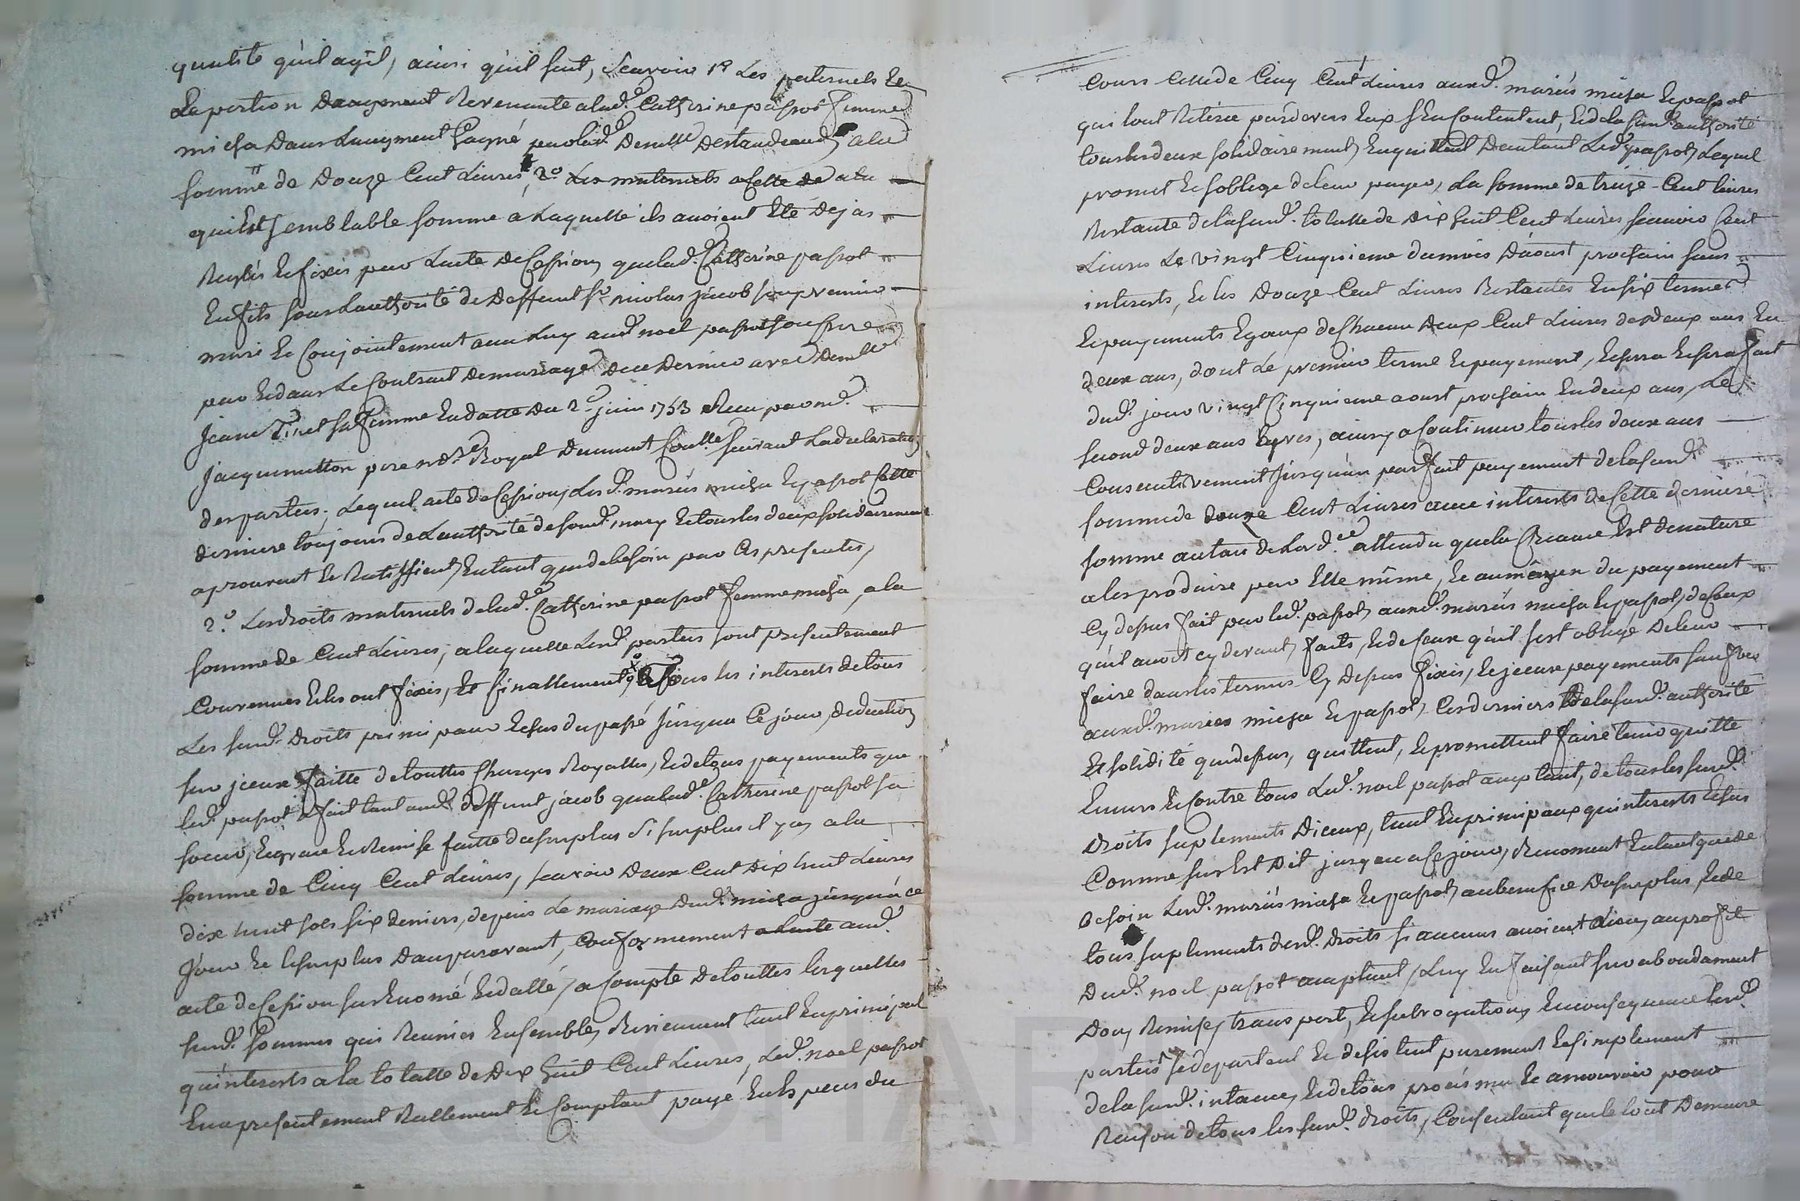 quantité qu'il agit, ainsi qu'il suit, scavoir 1º Les paternels Et
La portion daugment Revenante a lad.e Catherine passot femme
micha dans Laugment Gagné par lad.e Demlle Destandeau, a la
somme de Douze Cent Livres, 2º Les maternels a Cette de a la
qui Est semblable somme a Laquelle ils avoient Eté Dejas
Reglés Et fixés par Lacte de Cession que lad.e Catherine passot
En fit sous Lauthorité de Deffunt Sr. nicolas jacob son premier
mari Et Conjointement avec Luy aud. noel passot son frere
par Et dans Le Contrat de mariage de ce Dernier avec Demlle
jeanne sa femme En datte du 2.e juin 1753 Receu par me.
jacquemetton pere no.re Royal Suivant La declaration
des parties, Lequel acte de Cession Lesd. mariés micha Et passot Cette
derniere toujours de Lauthorité de sond. mary Et tous les deux solidairement
aprouvent Et Ratiffient En tant que de besoin par Ces presentes,
2.º Les droits maternels de lad.e Catherine passot femme micha, a la
somme de Cent Livres, a laquelle Lesd. parties sont presentement
Convenues Et les ont fixés, Et finallement, Tous les interests de tous
Les susd. Droits principaux Echus du passé jusqua Ce jour, deduction
sur jceux faitte de touttes Charges Royalles, Et de tous payements que
led. passot a fait tant aud. deffunt jacob qua lad.e Catherine passot sa
soeur, Et grace Et Remise faitte du surplus si surplus il y a, a la
somme de Cinq Cent Livres, scavoir Deux Cent Dix huit Livres
dix huit sols six deniers, depuis Le mariage dud. micha jusqu'a ce
jour Et le surplus dauparavant, Conformement a Lacte aud.
acte de Cession sus Enoncé Et datté, a Compte de touttes lesquelles
susd. sommes qui Reunies Ensembles Reviennent tant En principal
qu'interests a la totalle de Dix huit Cent Livres, Led. noel passot
En a presentement Reellement Et Comptant payé En Especes du
Cours Celle de Cinq Cent Livres auxd. mariés micha Et passot
qui Lont Retirée pardevers Eux s'En Contentent, Et de la susd. authorité
tous les deux solidairement En quittent Dautant Led. passot, Lequel
promet Et soblige de leur payer, La somme de treize Cent livres
Restante de la susd. totalle de Dix huit Cent Livres, scavoir Cent
Livres Le vingt Cinquieme du mois Daoust prochain sans
interests, Et les Douze Cent Livres Restantes En six termes
Et payements Egaux de Chacun Deux Cent Livres de deux ans En
deux ans, dont Le premier terme Et payement, Echerra Et sera fait
dud. jour vingt Cinquieme aoust prochain En deux ans, Le
second deux ans Après, ainsy a Continuer tous les deux ans
Consecutivement jusqu'au parfait payement de la susd.
somme de douze Cent Livres avec interests de Cette derniere
somme au taux de Lord.ce attendu que la Creance Est de nature
a les produire par Elle même, Et au moyen du payement
Cy dessus fait par led. passot auxd. mariés micha Et passot, de Ceux
qu'il avoit cy devant, faits, Et de Ceux qu'il s'est obligé De leur
faire dans les termes Cy Dessus fixés, Et jceux payements
auxd. mariés micha Et passot, Ces derniers de la susd. authorité
Et solidité que dessus, quittent, Et promettent faire tenir quitte
Envers Et Contre tous Led. noel passot acceptant, de tous les susd.
Droits suplements Diceux, tant En principaux qu'interests Echus
Comme sus Est Dit jusqu'a Ce jour, Renoncent En tant que de
Besoin Lesd. mariés micha Et passot, au benefice Du surplus, Et de
tous suplements desd. Droits si aucuns avoient Lieu, au profit
Dud. noel passot acceptant, Luy En faisant surabondament
Don, Remise, transport, Et subrogation, En consequence Lesd.
parties se departent Et desistent purement Et simplement
de la susd. instance, Et de tous procès mu Et a mouvoir pour
Raison de tous les susd. droits, Consentant que le tout Demeure